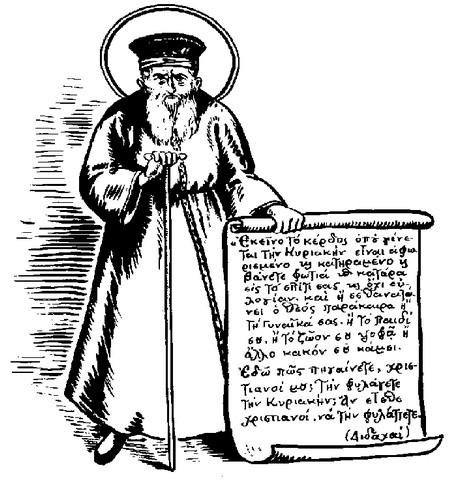 «Ἐκεῖνο τὸ κέρδος ὁποῦ γίνε-
ται τὴν Κυριακὴν εἶναι ἀφω-
ρισμένο ϗ κατηραμένο ϗ
βάνετε φωτιὰ ϗ κατάρα
εἰς τὸ σπίτι σας ϗ ὄχι εὐ-
λογίαν. καὶ ἢ σὲ θανατώ-
νει ὁ Θεὸς παράκαιρα ἢ
τὴ Γυναῖκα σας. ἢ τὸ παιδί
σου, ἢ τὸ ζῶον σου ψοφᾷ ἢ
ἄλλο κακὸν σοῦ κάμει.
Ἐδῶ πῶς πηγαίνετε, χρισ-
τιανοί μου; Τὴν φυλάγετε
τὴν Κυριακήν; Ἂν εἶσθε
χριστιανοί, νὰ τὴν φυλάγετε.
(Διδαχαὶ)